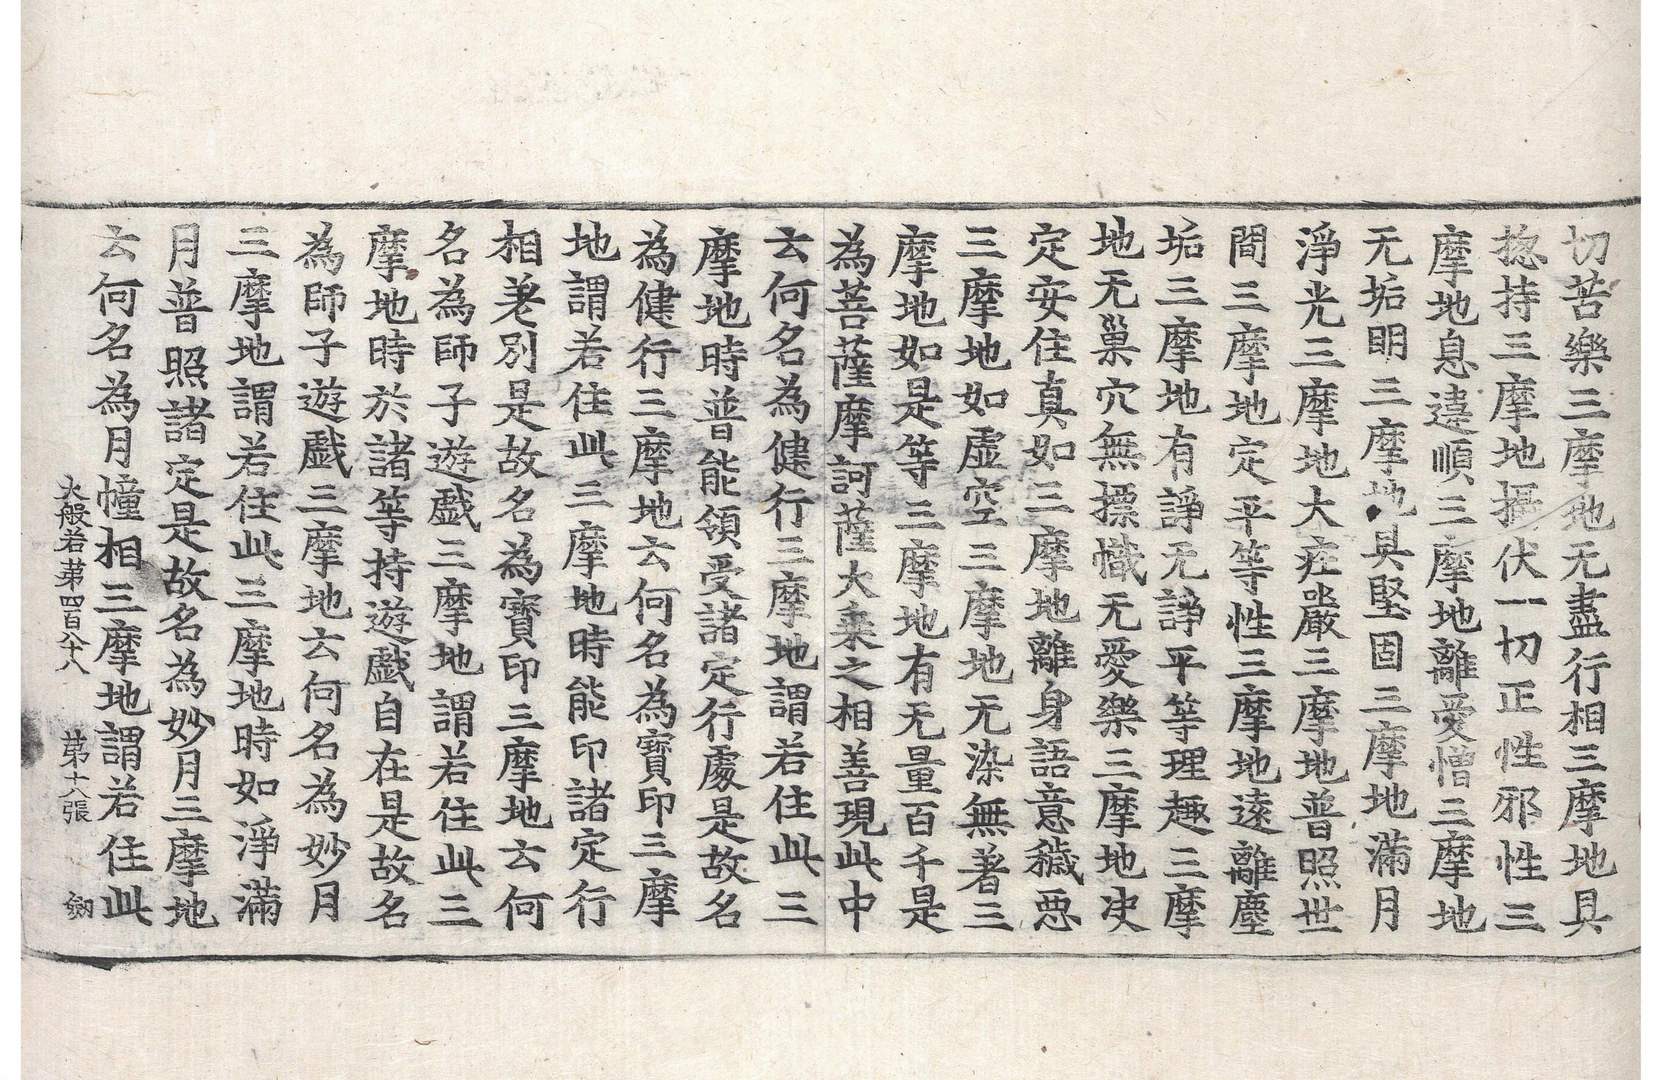 切苦樂三摩地无盡行相三摩地具
揔持三摩地攝伏一切正性邪性三
摩地息違順三摩地離愛憎三摩地
无垢明三摩地具堅固三摩地滿月
淨光三摩地大疘嚴三摩地普照世
間三摩地定平等性三摩地遠離塵
垢三摩地有諍无諍平等理趣三摩
地无巢穴無摽幟无愛樂三摩地决
定安住真如三摩地離身語意穢惡
三摩地如虛空三摩地无染無著三
摩地如是等三摩地有无量百千是
為菩薩摩訶薩大乘之相善現此中
云何名為健行三摩地謂若住此三
摩地時普能領受諸定行處是故名
為健行三摩地云何名為寶印三摩
地謂若住此三摩地時能印諸定行
相差別是故名為寶印三摩地云何
名為師子遊戲三摩地謂若住此三
摩地時於諸等持遊戲自在是故名
為師子遊戲三摩地云何名為妙月
三摩地謂若住此三摩地時如淨滿
月普照諸定是故名為妙月三摩地
云何名為月幢相三摩地謂若住此
大般若苐四百八十八 苐十八張 劒